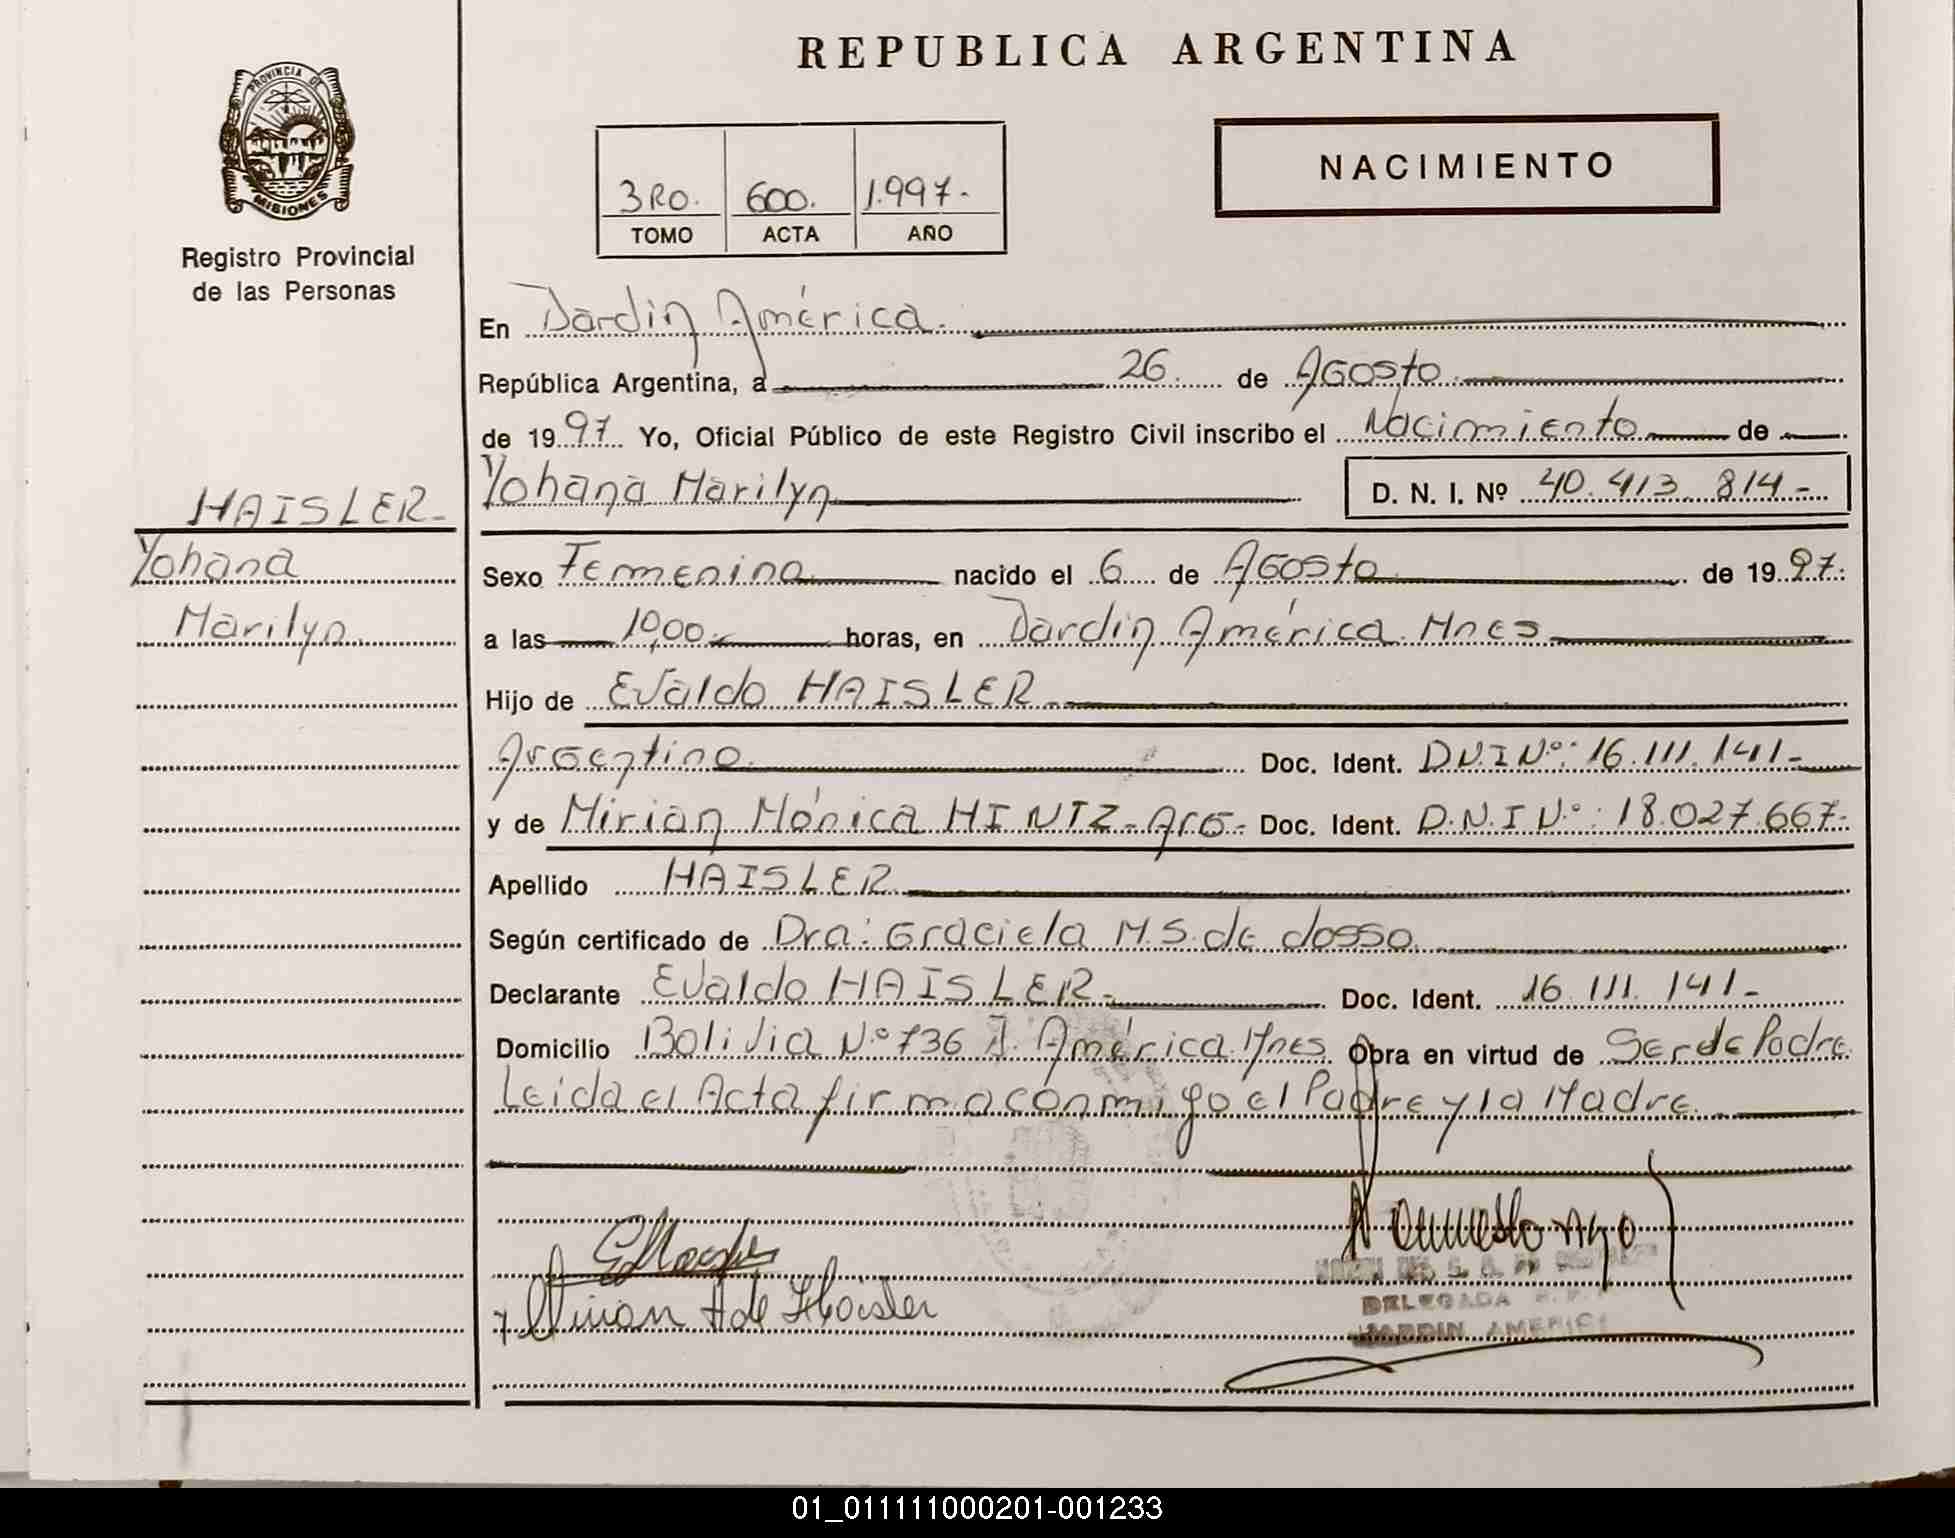 REPUBLICA ARGENTINA
PROVINCIA DE
MISIONES
Registro Provincial
de las Personas
NACIMIENTO
3RO. 600. 1.997.-
TOMO ACTA AÑO
HAISLER-
Yohana
Marilyn
En Jardin América.
República Argentina, a 26. de Agosto
de 1997 Yo, Oficial Público de este Registro Civil inscribo el Nacimiento de
Yohana Marilyn D. N. I. Nº 40.413.814-
Sexo Femenino nacido el 6 de Agosto de 1997.
a las 10,00 horas, en Jardin América Mnes
Hijo de Evaldo HAISLER
Argentino Doc. Ident. D.N.I Nº: 16.111.141-
y de Mirian Mónica HINTZ-Arg- Doc. Ident. D.N.I Nº: 18.027.667-
Apellido HAISLER
Según certificado de Dra: Graciela M.S. de dosso
Declarante Evaldo HAISLER- Doc. Ident. 16.111.141-
Domicilio Bolivia Nº 736 J. América Mnes Obra en virtud de Ser de Padre
Leida el Acta firma conmigo el Padre y la Madre.
DELEGADA
JARDIN AMERICA
01_011111000201-001233